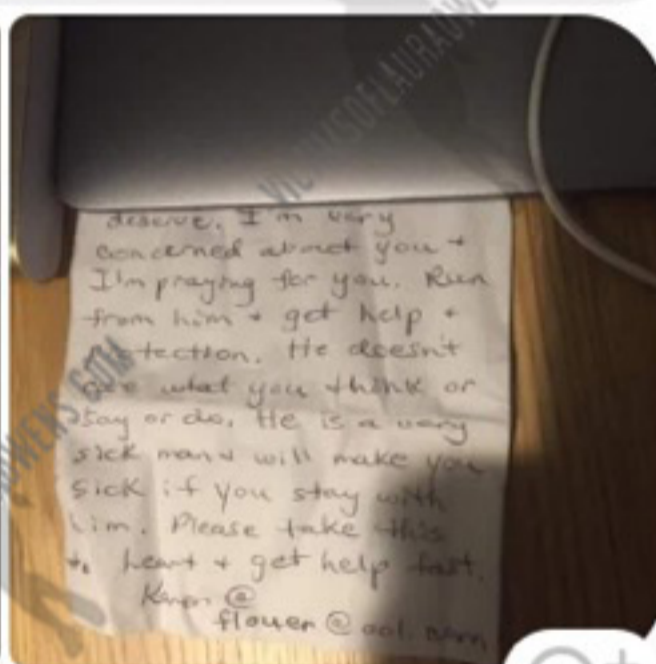 VICTIMSOFLAURAOWENS
deserve. I'm very
concerned about you +
I'm praying for you. Run
from him + get help +
protection. He doesn't
care what you think or
say or do. He is a very
sick man + will make you
sick if you stay with
him. Please take this
to heart + get help fast.
Karen @
flower@aol.
OWENS.COM